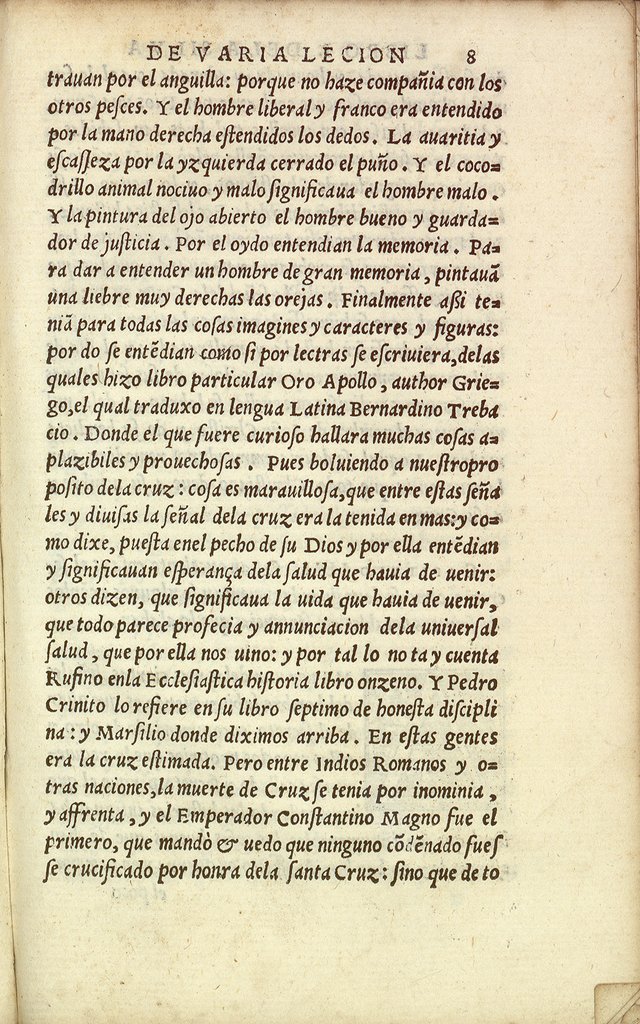 DE VARIA LECION 8
trauan por el anguilla: porque no haze compañia con los
otros peſces. Y el hombre liberal y franco era entendido
por la mano derecha eſtendidos los dedos. La auaritia y
eſcaſſeza por la yzquierda cerrado el puño. Y el coco=
drillo animal nociuo y malo ſignificaua el hombre malo.
Y la pintura del ojo abierto el hombre bueno y guarda=
dor de juſticia. Por el oydo entendian la memoria. Pa=
ra dar a entender un hombre de gran memoria, pintauã
una liebre muy derechas las orejas. Finalmente aßi te=
niã para todas las coſas imagines y caracteres y figuras:
por do ſe entẽdian como ſi por lectras ſe eſcriuiera, delas
quales hizo libro particular Oro Apollo, author Grie=
go, el qual traduxo en lengua Latina Bernardino Treba
cio. Donde el que fuere curioſo hallara muchas coſas a=
plazibiles y prouechoſas. Pues boluiendo a nueſtropro
poſito dela cruz: coſa es marauilloſa, que entre eſtas ſeña
les y diuiſas la ſeñal dela cruz era la tenida en mas: y co=
mo dixe, pueſta enel pecho de ſu Dios y por ella entẽdian
y ſignificauan eſperança dela ſalud que hauia de uenir:
otros dizen, que ſignificaua la uida que hauia de uenir,
que todo parece profecia y annunciacion dela uniuerſal
ſalud, que por ella nos uino: y por tal lo nota y cuenta
Rufino enla Eccleſiaſtica hiſtoria libro onzeno. Y Pedro
Crinito lo refiere en ſu libro ſeptimo de honeſta diſcipli
na: y Marſilio donde diximos arriba. En eſtas gentes
era la cruz eſtimada. Pero entre Indios Romanos y o=
tras naciones, la muerte de Cruz ſe tenia por inominia,
y affrenta, y el Emperador Conſtantino Magno fue el
primero, que mandò & uedo que ninguno cõdẽnado fueſ
ſe crucificado por honra dela ſanta Cruz: ſino que de to